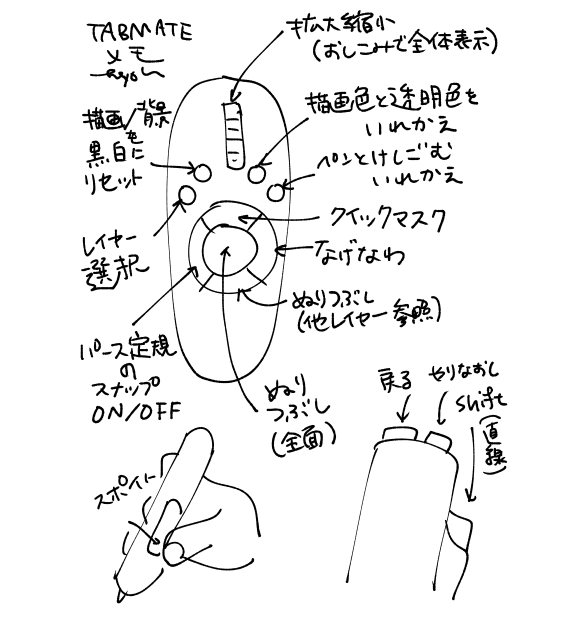 TABMATE
メモ
拡大縮小
(おしこみで全体表示)
描画/背景
を
黒白に
リセット
描画色と透明色を
いれかえ
ペンとけしごむ
いれかえ
クイックマスク
レイヤー
選択
なげなわ
ぬりつぶし
(他レイヤー参照)
パース定規
の
スナップ
ON/OFF
ぬり
つぶし
(全面)
戻る
やりなおし
Shift
(直線)
スポイト